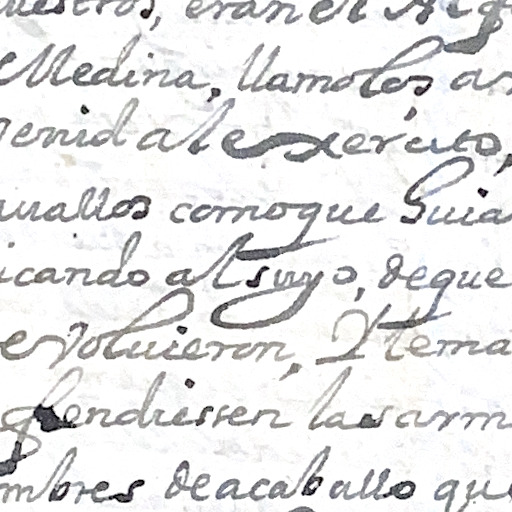 uestros, eran el Alf
Medina, llamolos, a
venid al exercito,
uallos como que huia
icando al suyo, de que
evoluieron, Ytema
fendiessen las arm
mbres de acaballo que